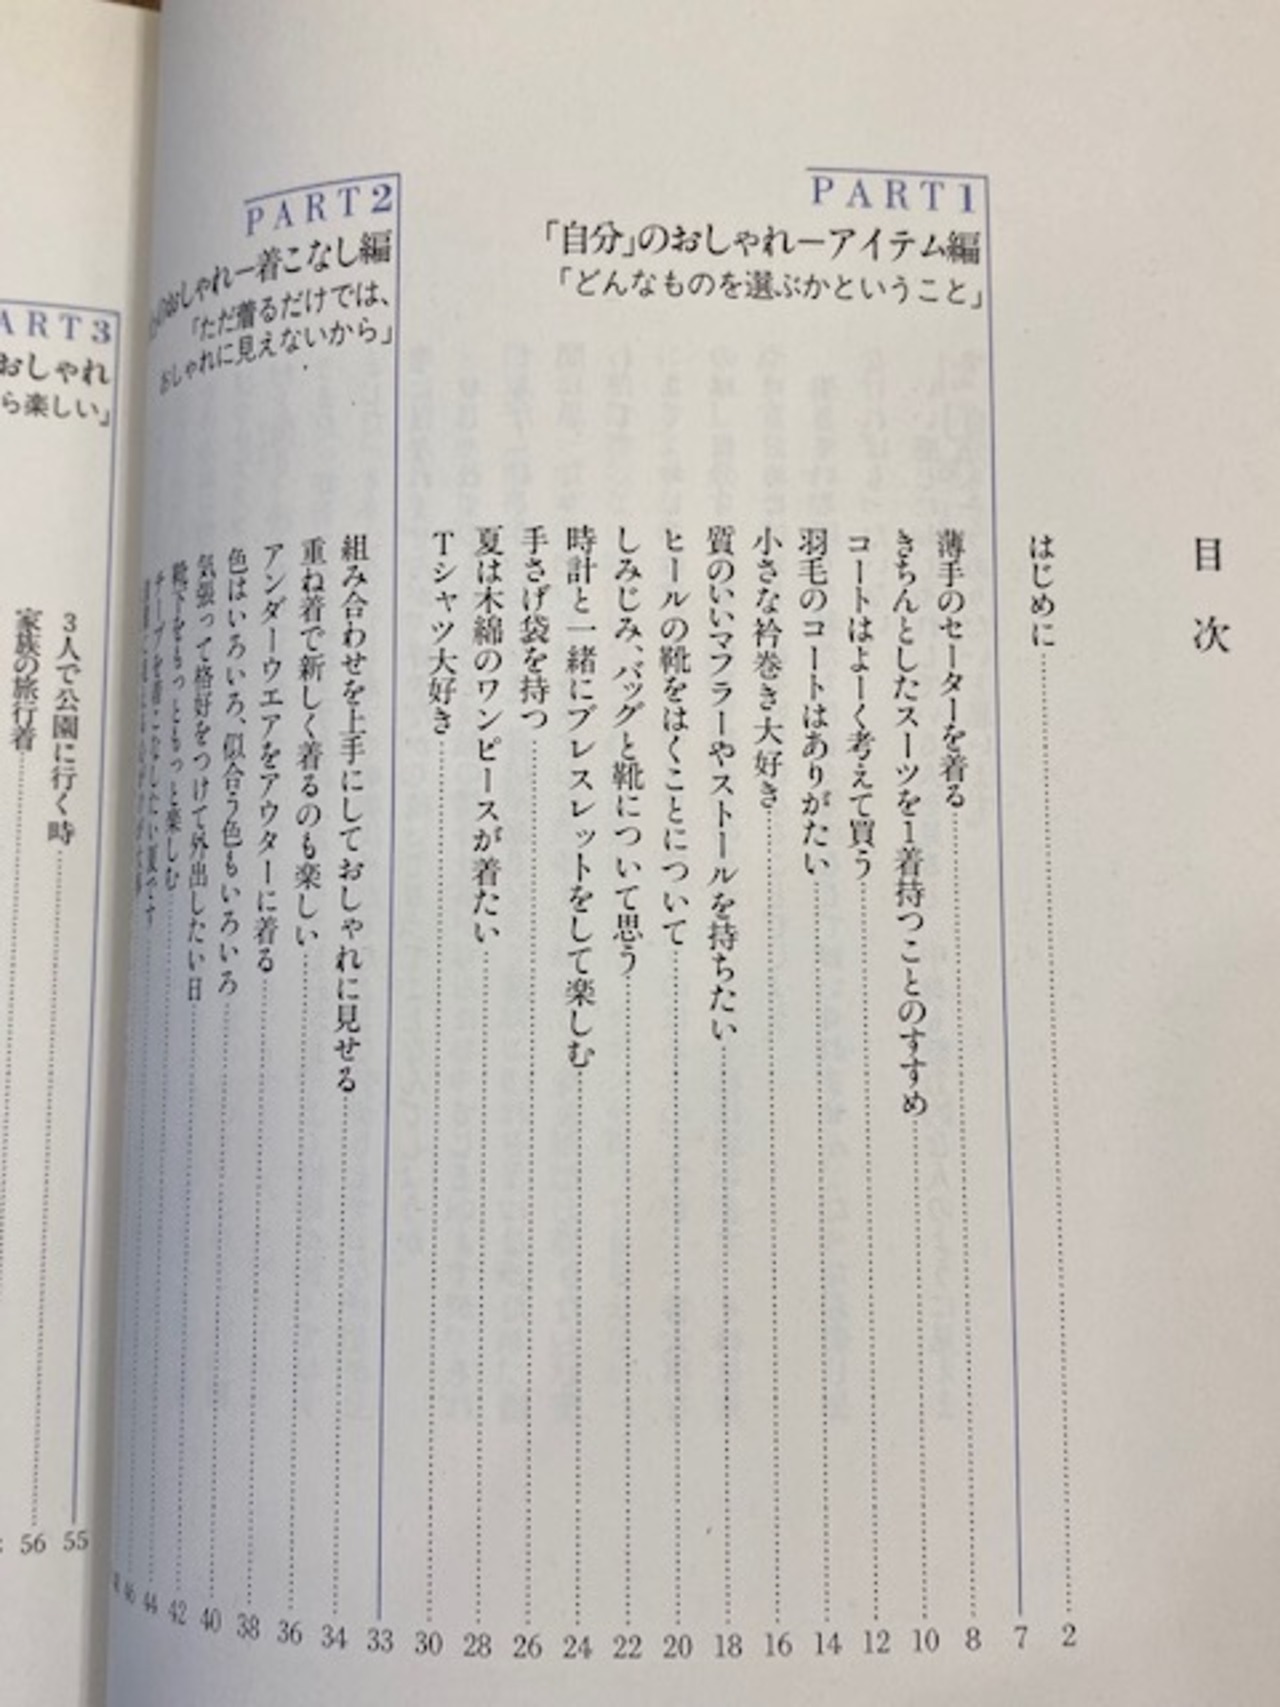 目次
はじめに 2
PART1 7
「自分」のおしゃれーアイテム編
「どんなものを選ぶかということ」
薄手のセーターを着る 8
きちんとしたスーツを1着持つことのすすめ 10
コートはよーく考えて買う 12
羽毛のコートはありがたい 14
小さな衿巻き大好き 16
質のいいマフラーやストールを持ちたい 18
ヒールの靴をはくことについて 20
しみじみ、バッグと靴について思う 22
時計と一緒にブレスレットをして楽しむ 24
手さげ袋を持つ 26
夏は木綿のワンピースが着たい 28
Tシャツ大好き 30
PART2 33
のおしゃれー着こなし編
「ただ着るだけでは、
おしゃれに見えないから」
組み合わせを上手にしておしゃれに見せる 34
重ね着で新しく着るのも楽しい 36
アンダーウエアをアウターに着る 38
色はいろいろ、似合う色もいろいろ 40
気張って格好をつけて外出したい日 42
靴下をもっともっと楽しむ 44
チープを着こなしたい夏です 46
ART3 55
おしゃれ
ら楽しい」
3人で公園に行く時 56
家族の旅行着